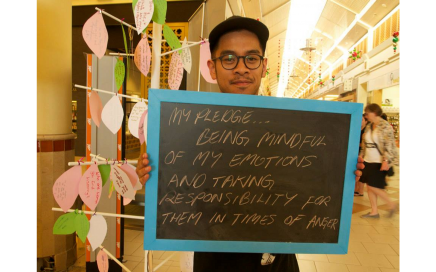 MY PLEDGE...
BEING MINDFUL
OF MY EMOTIONS
AND TAKING
RESPONSIBILITY FOR
THEM IN TIMES OF ANGER